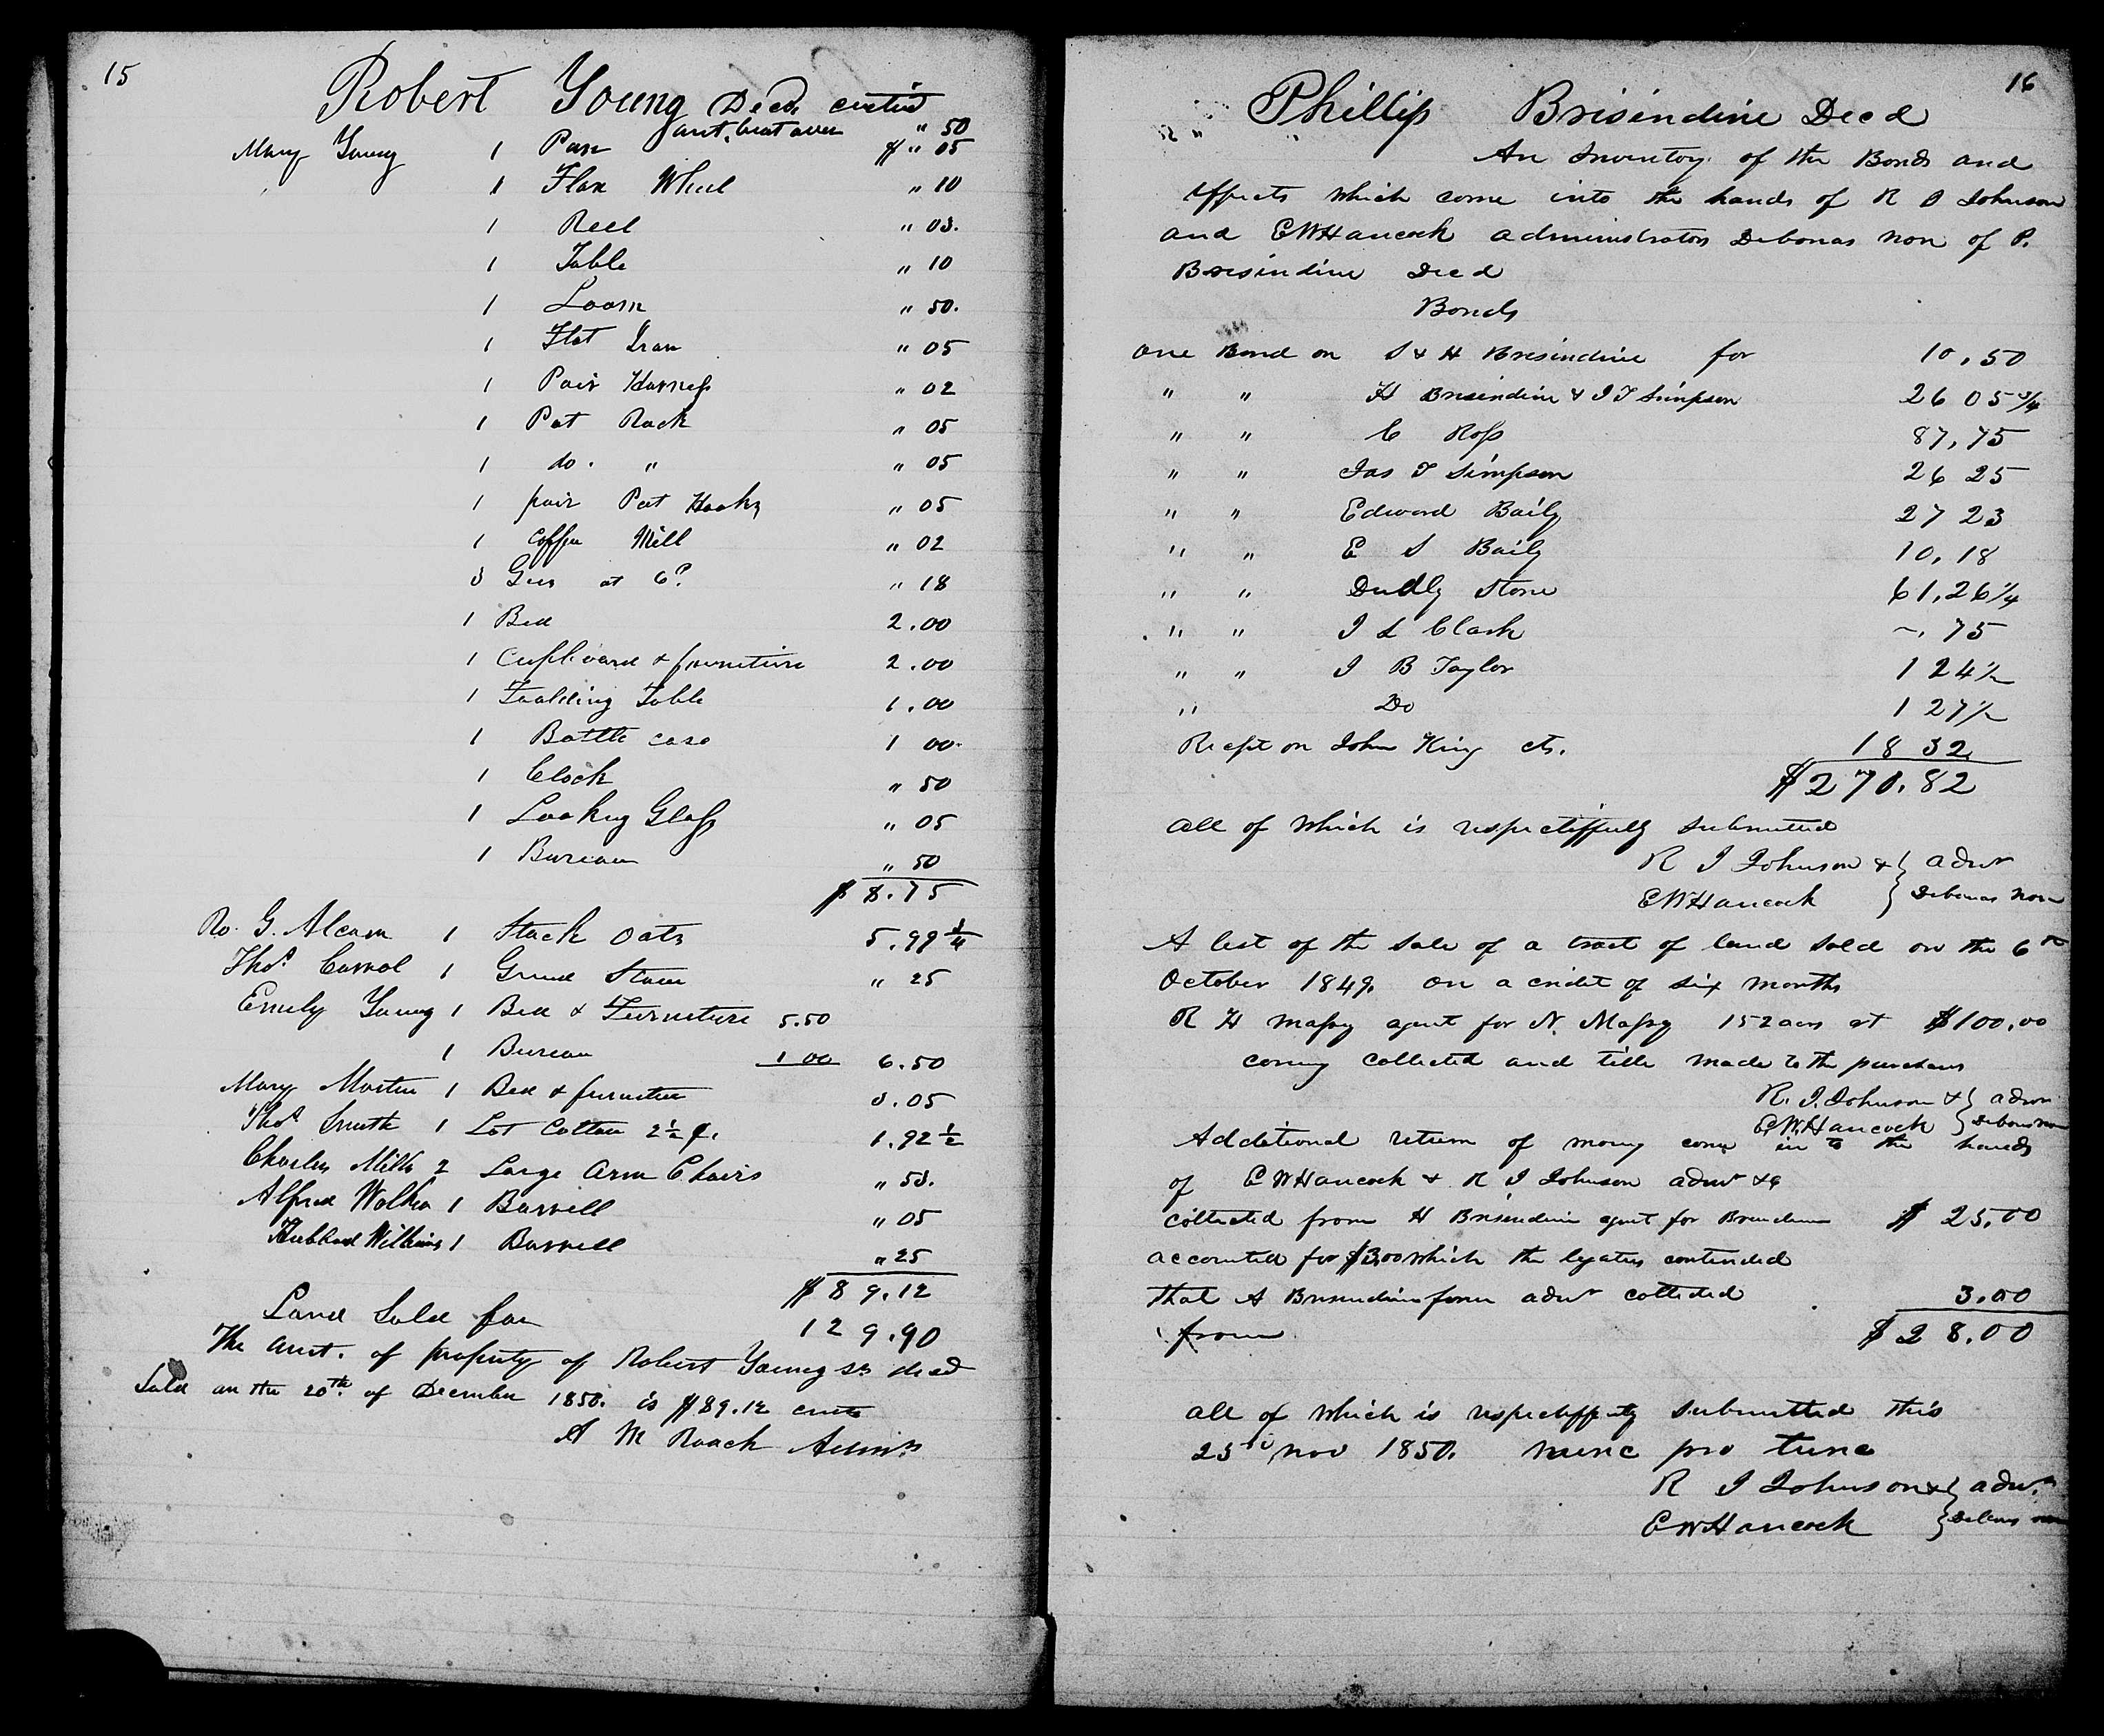 15
Robert Young Decd. contid
amt. brot over " 50
Mary Young 1 Pan $ " 05
1 Flax Wheel " 10
1 Reel " 03.
1 Table " 10
1 Loom " 50.
1 Flat Iron " 05
1 Pair Harness " 02
1 Pot Rack " 05
1 do. " " 05
1 pair Pot Hooks " 05
1 Coffee Mill " 02
3 Gees at 6? " 18
1 Bed 2.00
1 Cupboard & furniture 2.00
1 Foalding Table 1.00
1 Bottle case 1 00.
1 Clock " 50
1 Looking Glass " 05
1 Bureau " 50
$ 8.75
Ro. G. Alcorn 1 Stack Oats 5.99 1/4
Thos. Carrol 1 Grind Stone " 25
Emily Young 1 Bed & Furniture 5.50
1 Bureau 1 00 6.50
Mary Martin 1 Bed & furniture 3.05
Thos. Smith 1 Lot Cotton 2 1/2 ¢. 1.92 1/2
Charles Mills 2 Large Arm Chairs " 53.
Alfred Walker 1 Barrell " 05
Hubbard Wilkins 1 Barrell " 25
$ 89.12
Land Sold for 129.90
The amt. of property of Robert Young Sr decd
Sold on the 20th. of December 1850. is $89.12 cents
A M Roach Admr
16
Phillip Brisindine Decd
An Inventory of the Bonds and
effects which come into the hands of R I Johnson
and E W Hancock administrators Debonas non of P.
Brisindine Decd
Bonds
one Bond on S & H Brisindine for 10.50
" " H Brisindine & J T Simpson 26 05 3/4
" " C Ross 87,75
" " Jas T Simpson 26 25
" " Edward Baily 27 23
" " E S Baily 10,18
" " Dudly Stone 61,26 1/4
" " J L Clark ~, 75
" " J B Taylor 1 24 1/2
" Do 1 27 1/2
Recpt on John King cts. 18 32
$270.82
all of which is respectiffully submitted
R I Johnson & } admr
E W Hancock } Debonas non
A list of the sale of a tract of land sold on the 6th
October 1849. on a cridit of six months
R H Massy agent for N. Massy 152 acrs at $100.00
coming collected and title made to the purchaser
R. I. Johnson & } admr
E W Hancock } Debonas non
Additional return of mony come in to the hands
of E W Hancock & R I Johnson admr &c
collected from H Brisindine agent for $ 25,00
accounted for $3.00 which the legaters contended
that A Brisindine former admr collected 3.00
from $ 28.00
all of which is respectiffuly submitted this
25th nov 1850. nunc pro tunc
R I Johnson & } admr.
E W Hancock } Debonas non